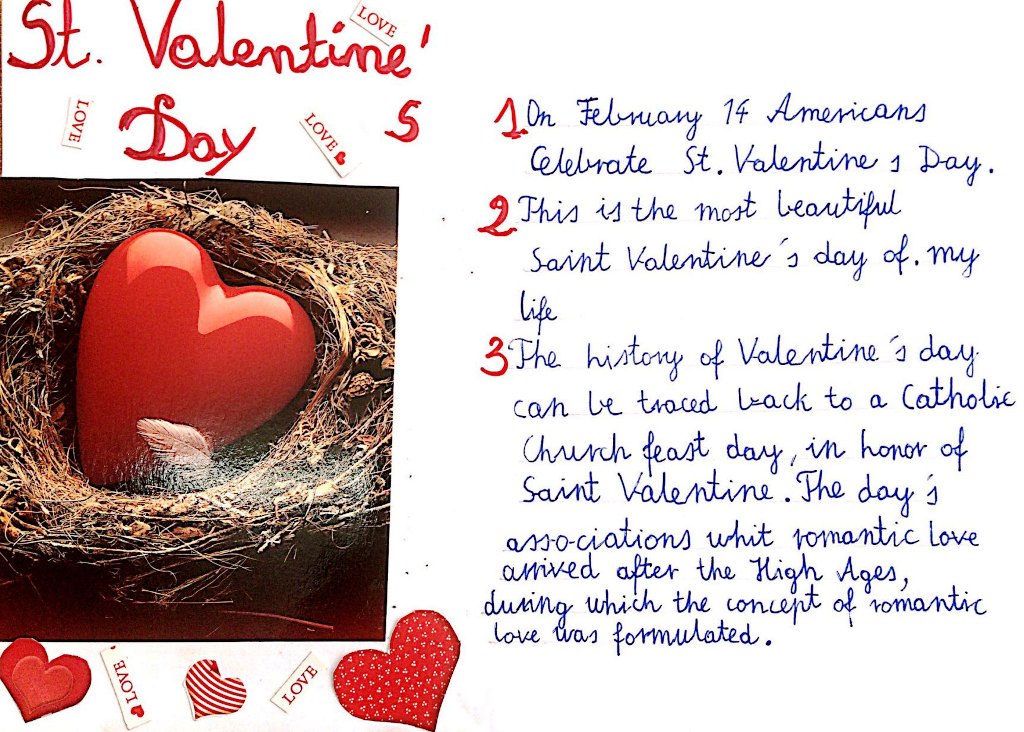 St. Valentine'
s
Day
LOVE
LOVE
LOVE
1. On February 14 Americans
Celebrate St. Valentine s Day.
2 This is the most beautiful
Saint Valentine's day of. my
life
3 The history of Valentine's day
can be traced back to a Catholic
Church feast day, in honor of
Saint Valentine. The day's
associations whit romantic love
arrived after the High Ages,
during which the concept of romantic
love was formulated.
LOVE
LOVE